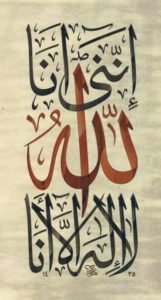 إنَّنى أنا
الله
لا إله إلَّا أنا
١٤